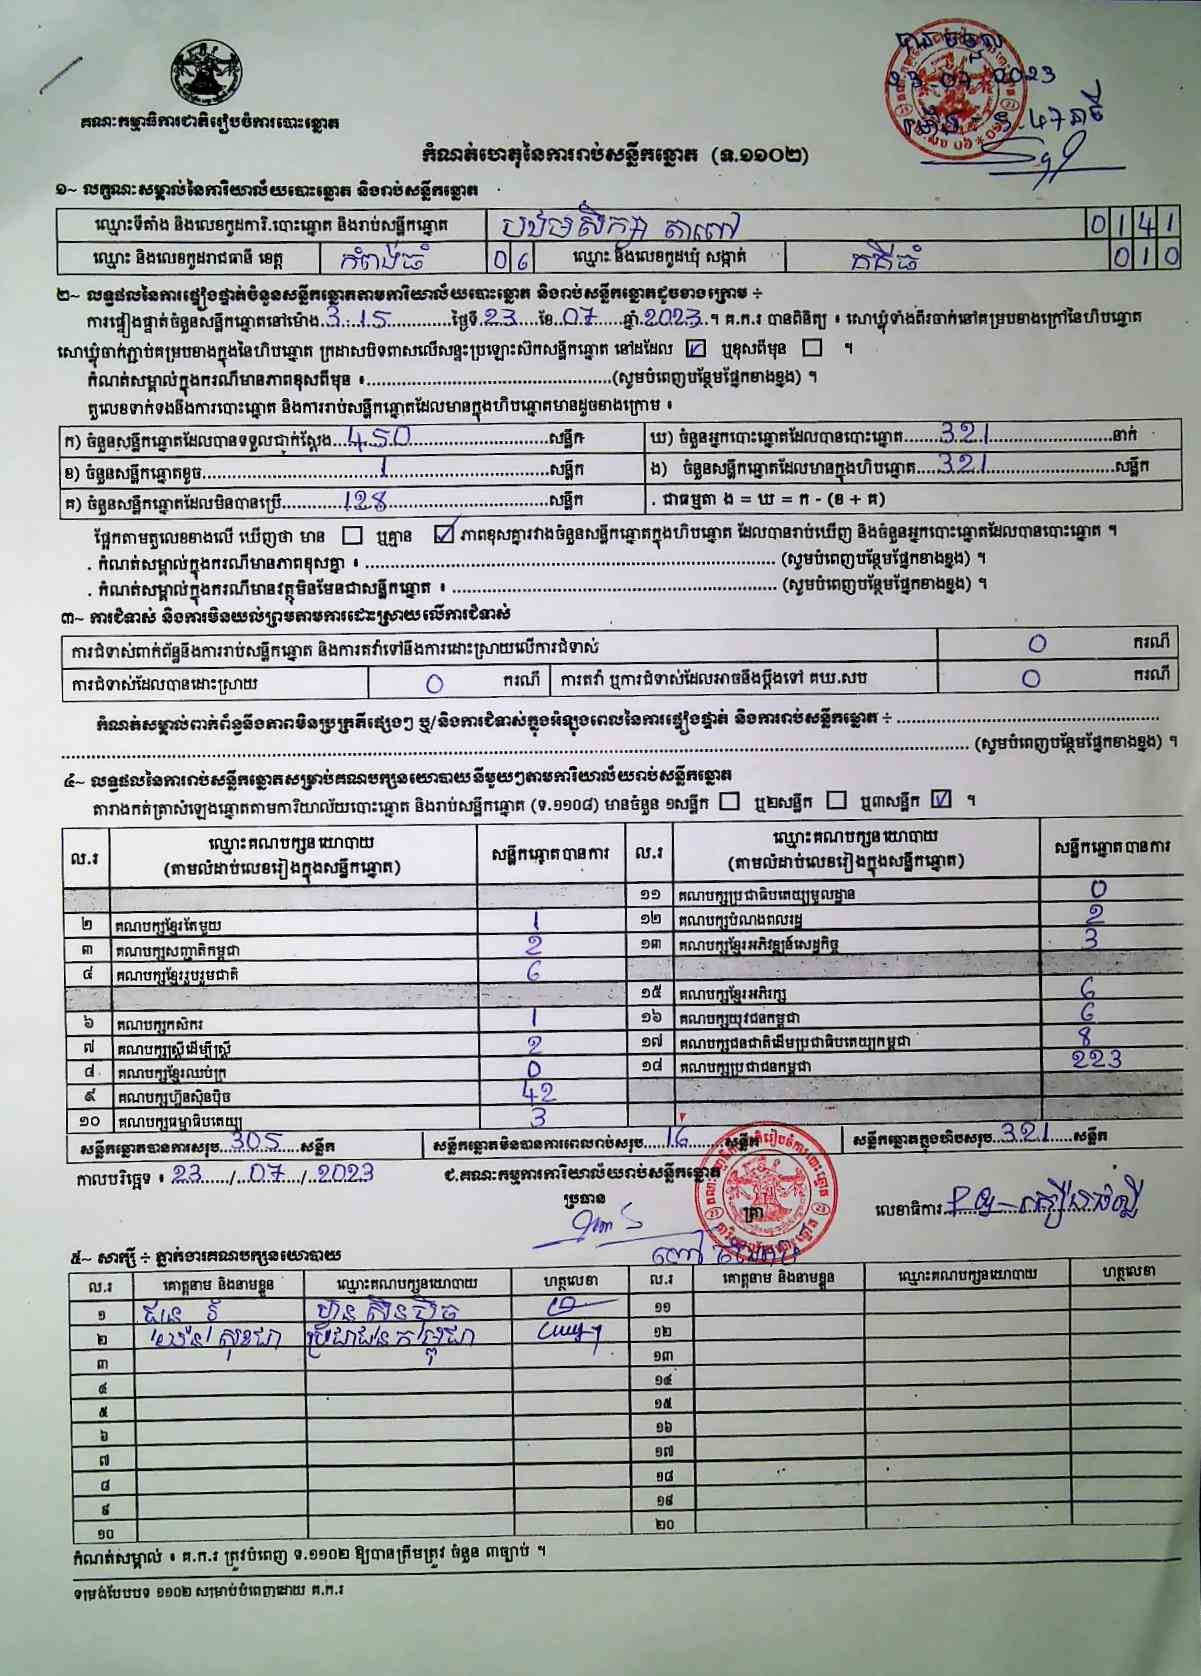 គណៈកម្មាធិការជាតិរៀបចំការបោះឆ្នោត
23.07.2023
កំណត់ហេតុនៃការរាប់សន្លឹកឆ្នោត (ទ.១១០២)
១~ លក្ខណៈសម្គាល់នៃការិយាល័យបោះឆ្នោត និងរាប់សន្លឹកឆ្នោត
ឈ្មោះទីតាំង និងលេខកូដការិ.បោះឆ្នោត និងរាប់សន្លឹកឆ្នោត បឋមសិក្សា តាពៅ 0141
ឈ្មោះ និងលេខកូដរាជធានី ខេត្ត កំពង់ធំ 06 ឈ្មោះ និងលេខកូដឃុំ សង្កាត់ គគីធំ 010
២~ លទ្ធផលនៃការផ្ទៀងផ្ទាត់ចំនួនសន្លឹកឆ្នោតតាមការិយាល័យបោះឆ្នោត និងរាប់សន្លឹកឆ្នោតដូចខាងក្រោម ÷
ការផ្ទៀងផ្ទាត់ចំនួនសន្លឹកឆ្នោតនៅម៉ោង 3:15 ថ្ងៃទី 23 ខែ 07 ឆ្នាំ 2023 ។ គ.ក.រ បានពិនិត្យ ៖ សោឃ្លុំទាំងពីរចាក់នៅគម្របខាងក្រៅនៃហិបឆ្នោត
សោឃ្លុំចាក់ភ្ជាប់គម្របខាងក្នុងនៃហិបឆ្នោត ក្រដាសបិទពាសលើសន្ទះប្រឡោះស៊កសន្លឹកឆ្នោត នៅដដែល ☑ ឬខុសពីមុន ☐ ។
កំណត់សម្គាល់ក្នុងករណីមានភាពខុសពីមុន ៖ (សូមបំពេញបន្ថែមផ្នែកខាងខ្នង) ។
តួលេខទាក់ទងនឹងការបោះឆ្នោត និងការរាប់សន្លឹកឆ្នោតដែលមានក្នុងហិបឆ្នោតមានដូចខាងក្រោម ៖
ក) ចំនួនសន្លឹកឆ្នោតដែលបានទទួលជាក់ស្តែង 450 សន្លឹក ឃ) ចំនួនអ្នកបោះឆ្នោតដែលបានបោះឆ្នោត 321 នាក់
ខ) ចំនួនសន្លឹកឆ្នោតខូច 1 សន្លឹក ង) ចំនួនសន្លឹកឆ្នោតដែលមានក្នុងហិបឆ្នោត 321 សន្លឹក
គ) ចំនួនសន្លឹកឆ្នោតដែលមិនបានប្រើ 128 សន្លឹក . ជាធម្មតា ង = ឃ = ក - (ខ + គ)
ផ្អែកតាមតួលេខខាងលើ ឃើញថា មាន ☐ ឬគ្មាន ☑ ភាពខុសគ្នារវាងចំនួនសន្លឹកឆ្នោតក្នុងហិបឆ្នោត ដែលបានរាប់ឃើញ និងចំនួនអ្នកបោះឆ្នោតដែលបានបោះឆ្នោត ។
. កំណត់សម្គាល់ក្នុងករណីមានភាពខុសគ្នា ៖ (សូមបំពេញបន្ថែមផ្នែកខាងខ្នង) ។
. កំណត់សម្គាល់ក្នុងករណីមានវត្ថុមិនមែនជាសន្លឹកឆ្នោត ៖ (សូមបំពេញបន្ថែមផ្នែកខាងខ្នង) ។
៣~ ការជំទាស់ និងការមិនយល់ព្រមតាមការដោះស្រាយលើការជំទាស់
ការជំទាស់ពាក់ព័ន្ធនឹងការរាប់សន្លឹកឆ្នោត និងការតវ៉ាទៅនឹងការដោះស្រាយលើការជំទាស់ 0 ករណី
ការជំទាស់ដែលបានដោះស្រាយ 0 ករណី ការតវ៉ា ឬការជំទាស់ដែលអាចនឹងប្តឹងទៅ គឃ.សប 0 ករណី
កំណត់សម្គាល់ពាក់ព័ន្ធនឹងភាពមិនប្រក្រតីផ្សេងៗ ឬ/និងការជំទាស់ក្នុងអំឡុងពេលនៃការផ្ទៀងផ្ទាត់ និងការរាប់សន្លឹកឆ្នោត ÷
(សូមបំពេញបន្ថែមផ្នែកខាងខ្នង) ។
៤~ លទ្ធផលនៃការរាប់សន្លឹកឆ្នោតសម្រាប់គណបក្សនយោបាយនីមួយៗតាមការិយាល័យរាប់សន្លឹកឆ្នោត
តារាងកត់ត្រាសំឡេងឆ្នោតតាមការិយាល័យបោះឆ្នោត និងរាប់សន្លឹកឆ្នោត (ទ.១១០៨) មានចំនួន ១សន្លឹក ☐ ឬ២សន្លឹក ☐ ឬ៣សន្លឹក ☑ ។
ល.រ ឈ្មោះគណបក្សនយោបាយ (តាមលំដាប់លេខរៀងក្នុងសន្លឹកឆ្នោត) សន្លឹកឆ្នោតបានការ ល.រ ឈ្មោះគណបក្សនយោបាយ (តាមលំដាប់លេខរៀងក្នុងសន្លឹកឆ្នោត) សន្លឹកឆ្នោតបានការ
១១ គណបក្សប្រជាធិបតេយ្យមូលដ្ឋាន 0
២ គណបក្សខ្មែរតែមួយ 1 ១២ គណបក្សបំណងពលរដ្ឋ 2
៣ គណបក្សសញ្ជាតិកម្ពុជា 2 ១៣ គណបក្សខ្មែរអភិវឌ្ឍន៍សេដ្ឋកិច្ច 3
៤ គណបក្សខ្មែររួបរួមជាតិ 6
១៥ គណបក្សខ្មែរអភិរក្ស 6
៦ គណបក្សកសិករ 1 ១៦ គណបក្សយុវជនកម្ពុជា 6
៧ គណបក្សស្ត្រីដើម្បីស្ត្រី 2 ១៧ គណបក្សជនជាតិដើមប្រជាធិបតេយ្យកម្ពុជា 8
៨ គណបក្សខ្មែរឈប់ក្រ 0 ១៨ គណបក្សប្រជាជនកម្ពុជា 223
៩ គណបក្សហ៊្វុនស៊ិនប៉ិច 42
១០ គណបក្សធម្មាធិបតេយ្យ 3
សន្លឹកឆ្នោតបានការសរុប 305 សន្លឹក សន្លឹកឆ្នោតមិនបានការពេលរាប់សរុប 16 សន្លឹក សន្លឹកឆ្នោតក្នុងហិបសរុប 321 សន្លឹក
កាលបរិច្ឆេទ ៖ 23 / 07 / 2023 ជ.គណៈកម្មការការិយាល័យរាប់សន្លឹកឆ្នោត
ប្រធាន ត្រា លេខាធិការ
៥~ សាក្សី ÷ ភ្នាក់ងារគណបក្សនយោបាយ
ល.រ គោត្តនាម និងនាមខ្លួន ឈ្មោះគណបក្សនយោបាយ ហត្ថលេខា ល.រ គោត្តនាម និងនាមខ្លួន ឈ្មោះគណបក្សនយោបាយ ហត្ថលេខា
១ ហ៊្វុនស៊ិនប៉ិច ១១
២ ប្រជាជនកម្ពុជា ១២
៣ ១៣
៤ ១៤
៥ ១៥
៦ ១៦
៧ ១៧
៨ ១៨
៩ ១៩
១០ ២០
កំណត់សម្គាល់ ៖ គ.ក.រ ត្រូវបំពេញ ទ.១១០២ ឱ្យបានត្រឹមត្រូវ ចំនួន ៣ច្បាប់ ។
ទម្រង់បែបបទ ១១០២ សម្រាប់បំពេញដោយ គ.ក.រ